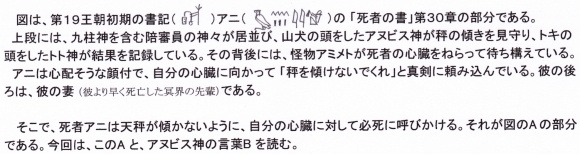 図は、第19王朝初期の書記( )アニ( )の「死者の書」第30章の部分である。
上段には、九柱神を含む陪審員の神々が居並び、山犬の頭をしたアヌビス神が秤の傾きを見守り、トキの
頭をしたトト神が結果を記録している。その背後には、怪物アミメトが死者の心臓をねらって待ち構えている。
アニは心配そうな顔付で、自分の心臓に向かって「秤を傾けないでくれ」と真剣に頼み込んでいる。彼の後
ろは、彼の妻(彼より早く死亡した冥界の先輩)である。
そこで、死者アニは天秤が傾かないように、自分の心臓に対して必死に呼びかける。それが図のAの部分
である。今回は、このAと、アヌビス神の言葉Bを読む。